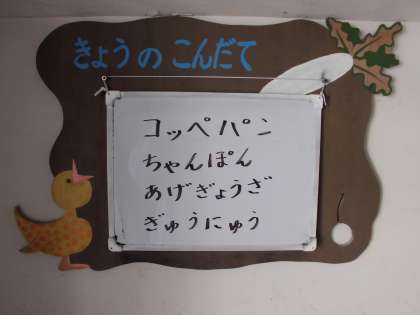 きょうの こんだて
コッペパン
ちゃんぽん
あげぎょうざ
ぎゅうにゅう